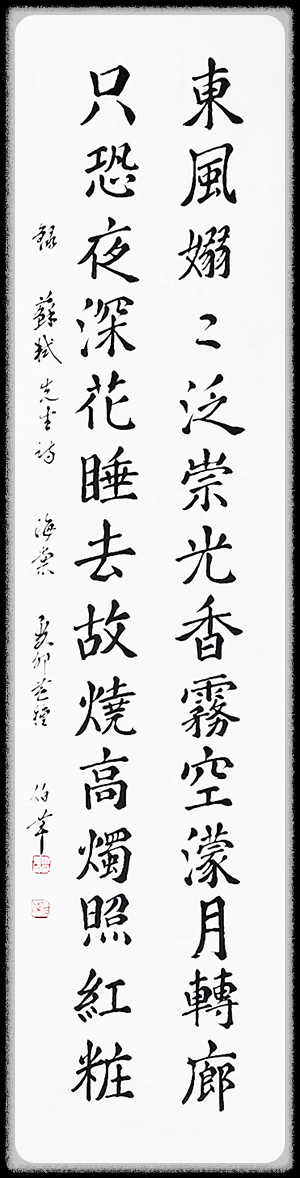 東風嫋〻泛崇光香霧空濛月轉廊
只恐夜深花睡去故燒高燭照紅粧
錄 蘇軾先生詩 海棠 癸卯芒種 伯華